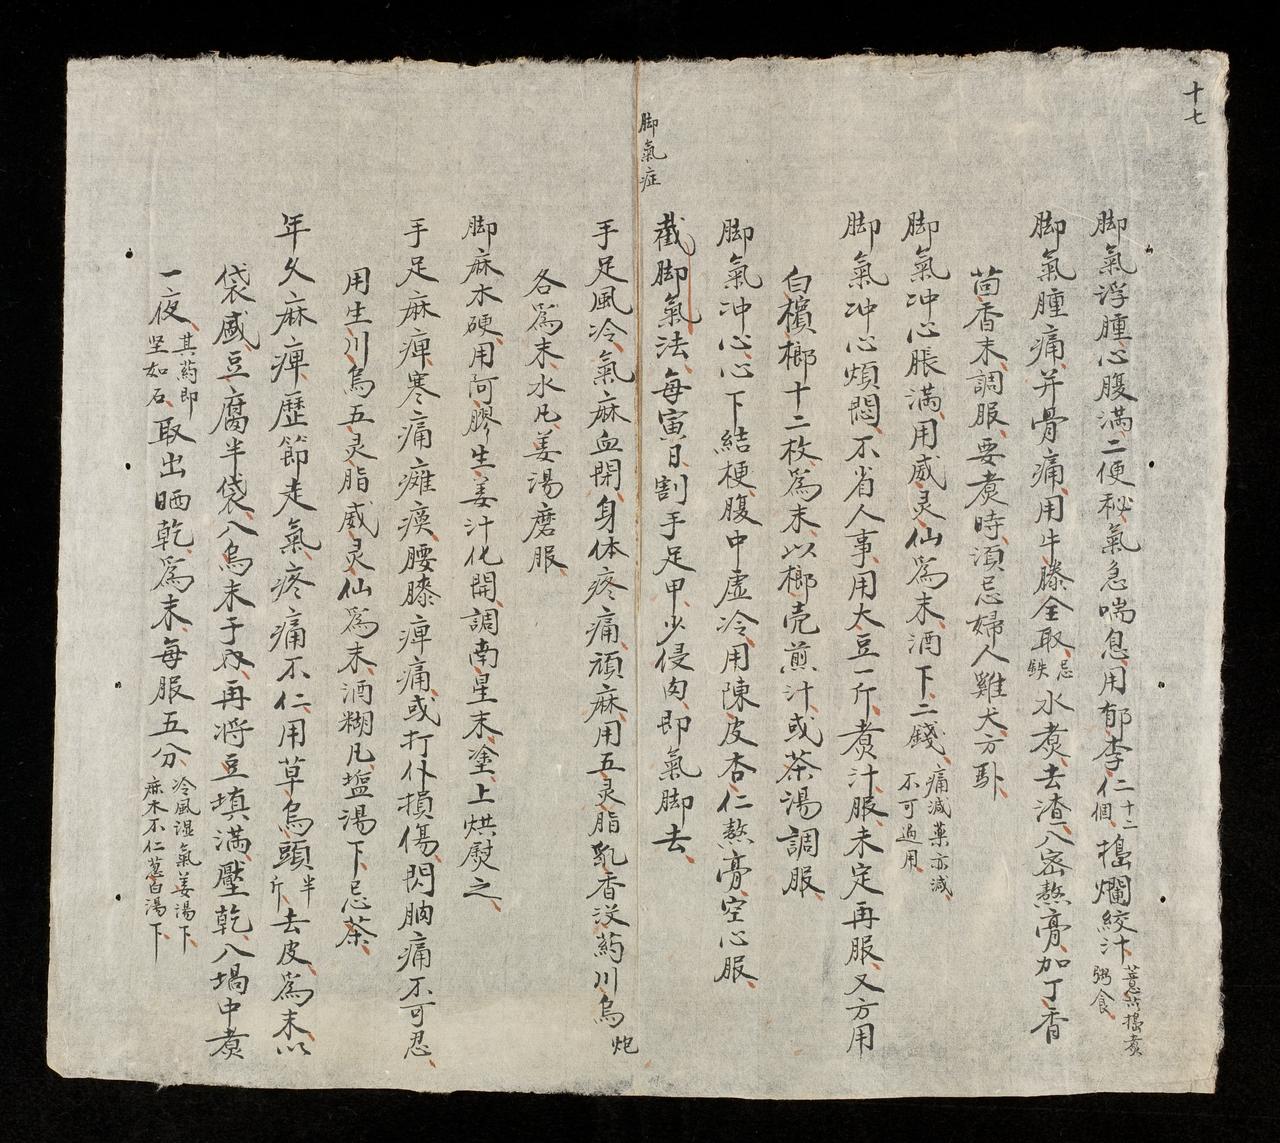 十七
脚氣浮腫心腹滿二便秘氣急喘息用郁李仁十二個搗爛絞汁薏苡搗煮粥食
脚氣腫痛并骨痛用牛膝全取忌鉄水煮去渣入密熬膏加丁香
茴香末調服要煮時須忌婦人雞犬方馱
脚氣冲心脹滿用威灵仙為末酒下二錢痛減薬亦減不可過用
脚氣冲心煩悶不省人事用大豆一斤煮汁服未定再服又方用
白檳榔十二枚為末以榔壳煎汁或茶湯調服
脚氣冲心心下結梗腹中虛冷用陳皮杏仁熬膏空心服
脚氣症
截脚氣法每寅日割手足甲少侵肉即氣脚去
手足風冷氣麻血閉身体疼痛頑麻用五灵脂乳香没药川烏炮
各為末水凡姜湯磨服
脚麻木硬用阿膠生姜汁化開調南星末塗上烘熨之
手足麻痺寒痛癱瘓腰膝痺痛或打仆損傷閃朒痛不可忍
用生川烏五灵脂威灵仙為末酒糊凡塩湯下忌茶
年久麻痺歷節走氣疼痛不仁用草烏頭半斤去皮為末以
袋盛豆腐半袋入烏末于内再将豆填滿壓乾入堝中煮
一夜其药即坚如石取出晒乾為末每服五分冷風湿氣姜湯下麻木不仁葱白湯下